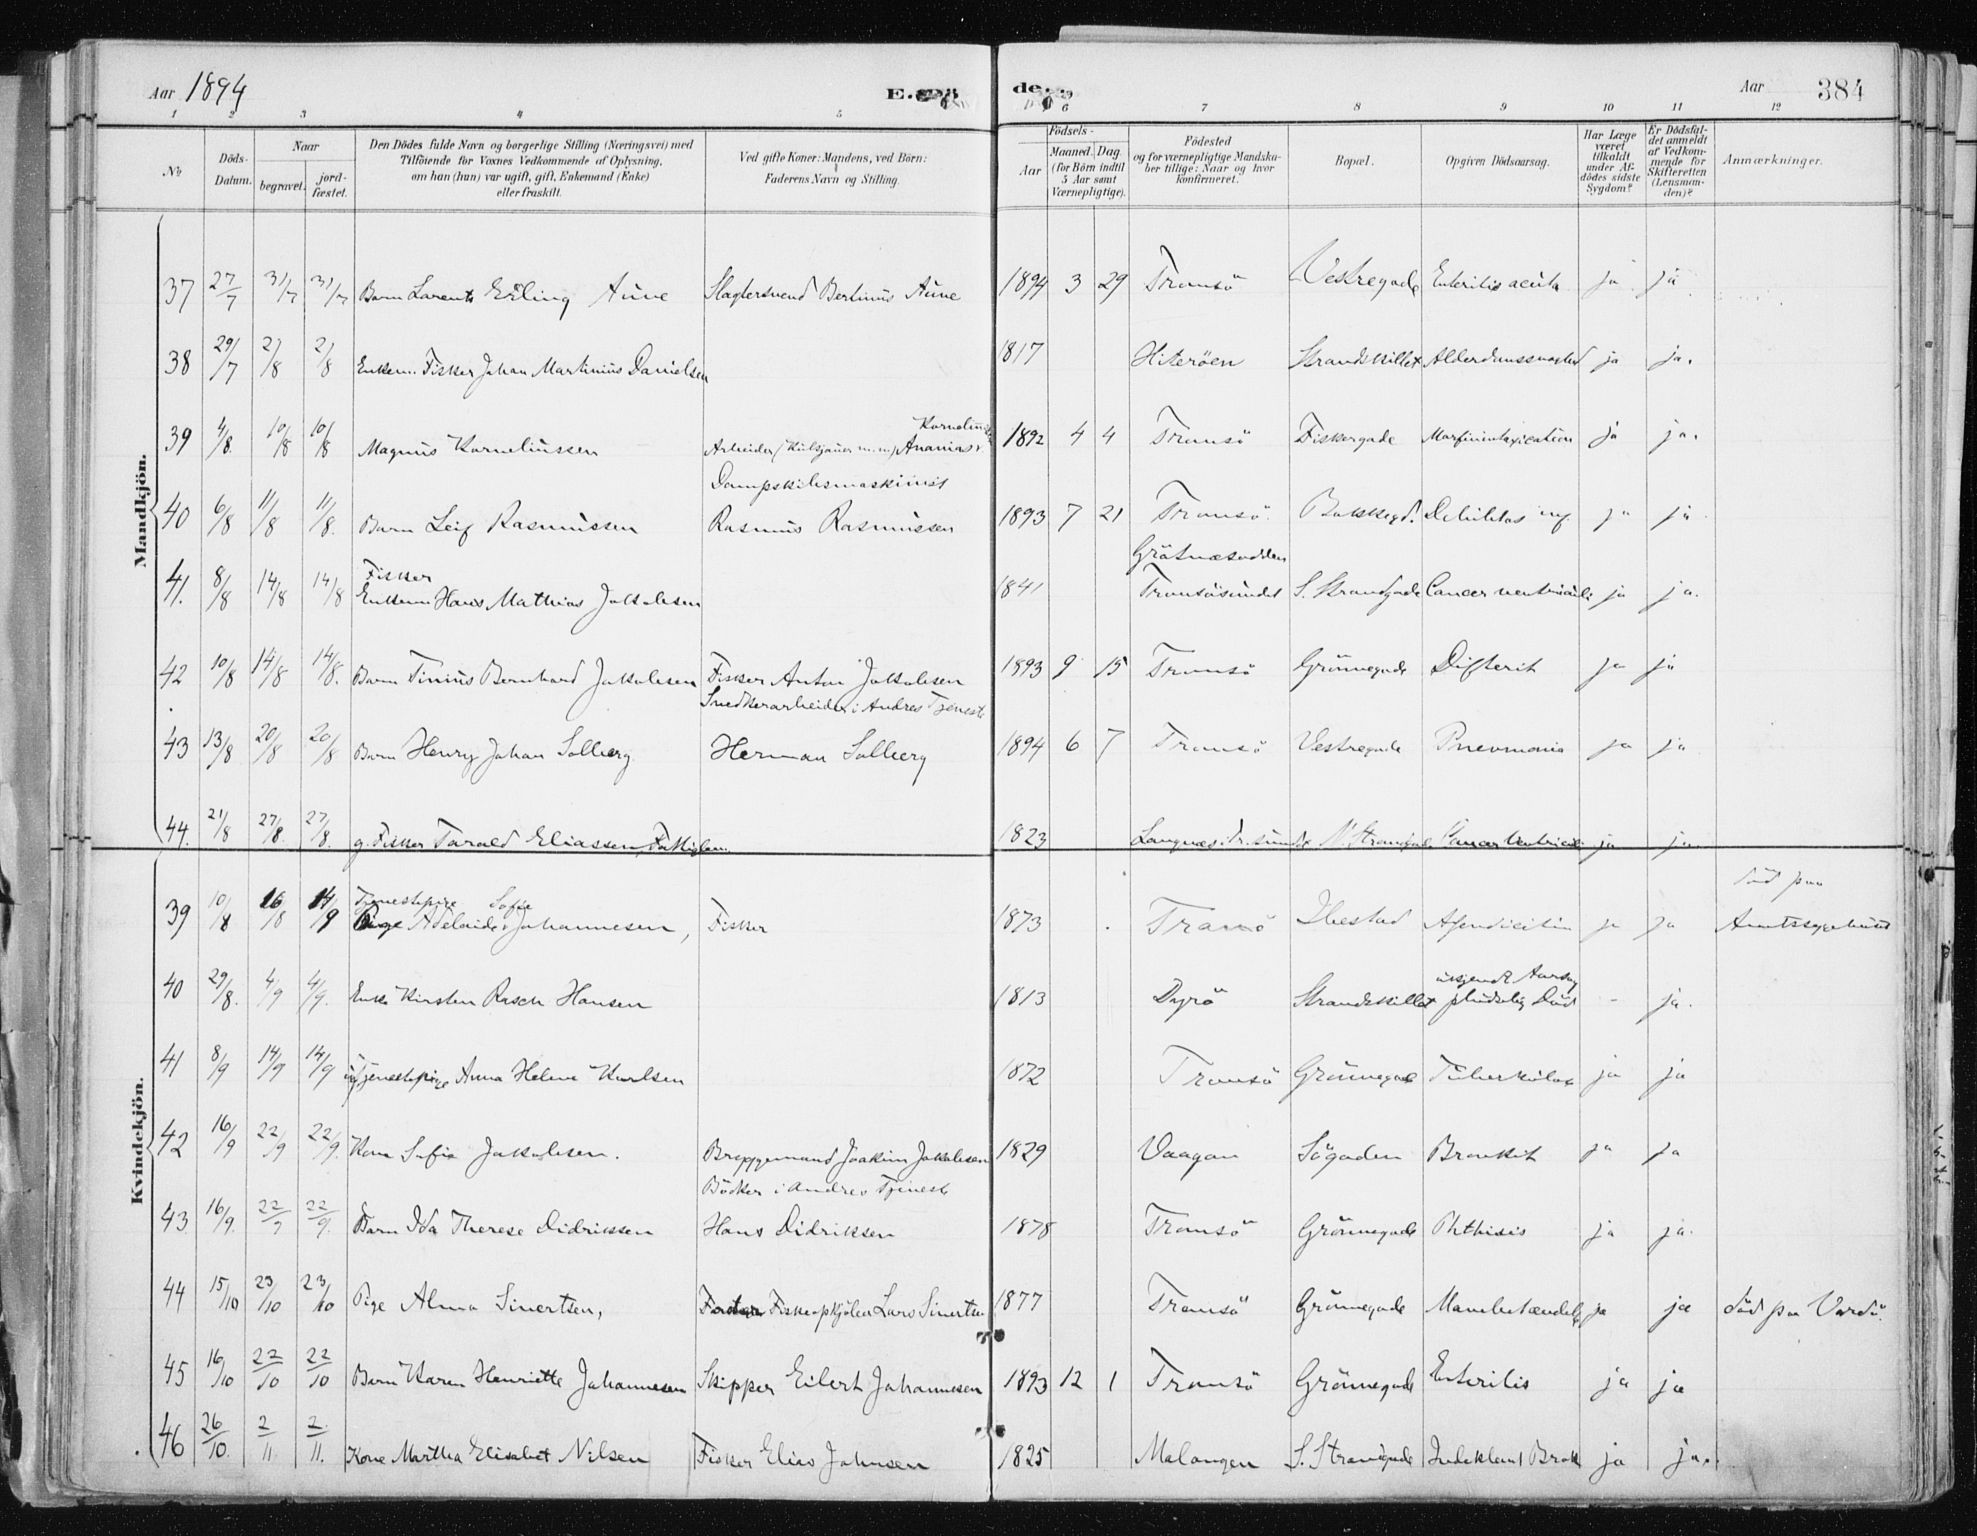 Aar 1894
E. Döde.
Aar 384
1 2 3 4 5 6 7 8 9 10 11 12
№
Döds-Datum.
Naar
begravet.
jordfæstet.
Den Dödes fulde Navn og borgerlige Stilling (Næringsvei) med
Tilföiende for Voxnes Vedkommende af Oplysning,
om han (hun) var ugift, gift, Enkemand (Enke)
eller fraskilt.
Ved gifte Koner: Mandens, ved Börn:
Faderens Navn og Stilling.
Födsels-
Aar
Maaned. Dag.
(for Börn indtil
5 Aar samt
Værnepligtige).
Födested
og for værnepligtige Mandska-
ber tillige: Naar og hvor
konfirmeret.
Bopæl.
Opgiven Dödsaarsag.
Har Læge
været
tilkaldt
under Af-
dödes sidste
Sygdom?
Er Dödsfal-
det anmeldt
af Vedkom-
mende for
Skifteretten
(Lensman-
den)?
Anmærkninger.
Mandkjön.
37 27/7 31/7 31/7 Barn Larents Erling Aune Slagtersvend Bertinus Aune 1894 3 29 Tromsö Vestregade Enteritis acuta ja ja
38 29/7 2/8 2/8 Enkem. Fisker Johan Martinius Danielsen 1817 Hiteröen Strandskillet Alderdomssvaghed ja ja.
39 4/8 10/8 10/8 Magnus Korneliussen Arbeider (Kulsjauer m.m.) Ananias Kornelius 1892 4 4 Tromsö Fiskergade Morfinintoxication ja ja.
Dampskibsmaskinist
40 6/8 11/8 11/8. Barn Leif Rasmussen Rasmus Rasmussen 1893 7 21 Tromsö Bakkegd. Debilitas ja ja
Fisker
Grötnæsodden
41. 8/8 14/8 14/8 Enkem Hans Mathias Jakobsen 1841 Tromsösundet S. Strandgade Cancer ventriculi ja ja.
42 10/8 14/8 14/8. Barn Tinius Bernhard Jakobsen Fisker Anton Jakobsen 1893 9 15 Tromsö Grönnegade Difterit ja ja
Snedkerarbeider i Andres Tjeneste
43 13/8 20/8 20/8 Barn Henry Johan Solberg Herman Solberg 1894 6 7 Tromsö Vestregade Pneumonia ja ja
44. 21/8 27/8. 27/8. g. Fisker Tarald Eliassen, Fattiglem. 1823 Langnæs, Tr.sundet N. Strandgade Cancer Ventriculi ja ja
Kvindekjön.
Tjenestepige Sofie
död paa
39 10/8 16/8 14/9 Pige Adelaide Johannesen, Fisker 1873 Tromsö Ibestad Apendicitis ja ja Amtssygehuset
ukjendt Aarsag
40 29/8. 4/9 4/9. Enke Kirsten Rasch Hansen 1813 Dyrö Strandskillet pludselig Död - ja.
41 8/9 14/9 14/9 ug. Tjenestepige Anna Helene Karlsen 1872 Tromsö Grönnegade Tuberkulose ja ja
42 16/9 22/9 22/9. Kone Sofie Jakobsen. Bryggemand Joakim Jakobsen 1829 Vaagan Sögaden Bronkit ja ja
Bödker i Andres Tjeneste
43 16/9. 22/9 22/9. Barn Ida Therese Didriksen Hans Didriksen 1878 Tromsö Grönnegade Phthisis ja ja.
44 15/10 23/10 23/10 Pige Alma Sivertsen, Fiskeopkjöber Lars Sivertsen 1877 Tromsö Grönnegade Mavebetændelse ja ja död paa Vardö.
45 16/10 22/10 22/10 Barn Karen Henriette Johannesen Skipper Eilert Johannesen 1893 12 1 Tromsö Grönnegade Enteritis ja ja
46 26/10. 2/11. 2/11. Kone Martha Elisabet Nilsen Fisker Elias Johnsen 1825 Malangen S. Strandgade Indeklemt Brok ja ja.